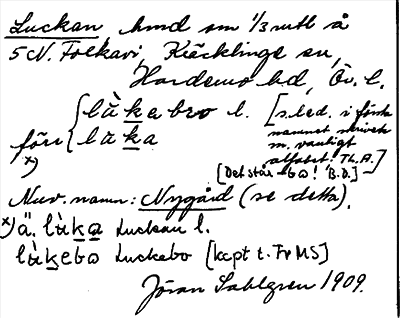 Luckan, hmd om 1/3 mtl å
5 N. Folkavi, Kräcklinge sn,
Hardemo hd, Ör. l.
lùkebro l. [s.led. i förra
namnet skrivet
förr lùka m. vanligt
x) alfabet. Th.A.]
[Det står -bo! B.D.]
Nuv. namn: Nygård (se detta).
x) ä. lùka Luckan l.
lùkebo Luckebo [kcpt t. Fr MS]
Jöran Sahlgren 1909.